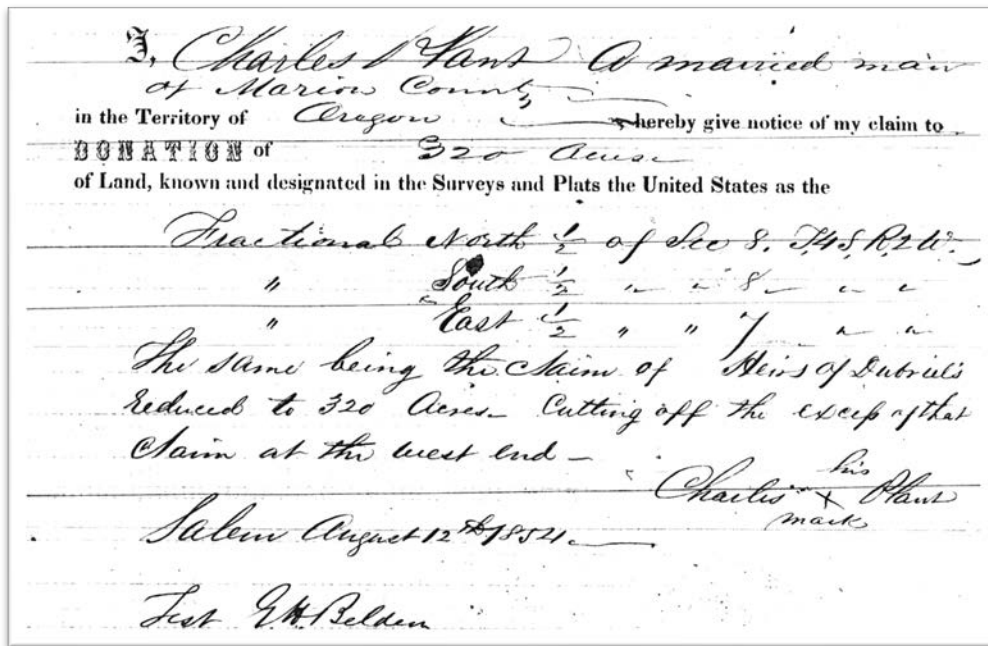 I, Charles Plant A married man
of Marion County
in the Territory of Oregon hereby give notice of my claim to
DONATION of 320 Acres
of Land, known and designated in the Surveys and Plats the United States as the
Fractional North 1/2 of Sec 8. T,4 S, R, 2 W.
" South 1/2 " " 8 " "
" East 1/2 " " 7 " "
The same being the Claim of Heirs of Dubriel's
reduced to 320 Acres - Cutting off the excess of that
Claim at the west end -
his
Charles X Plant
mark
Salem August 12th 1854
Test E H Belden